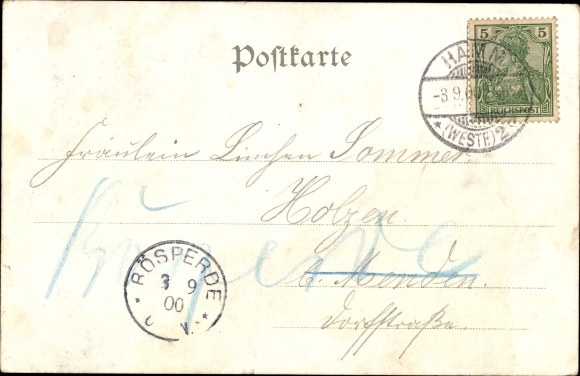 Postkarte
5 5
REICHSPOST
HAMM
-3.9.00
* (WESTF.) 2
Fräulein Linchen Sommer.
Holzen.
b. Menden.
Dorfstraße.
* RÖSPERDE *
3 9
00
V.